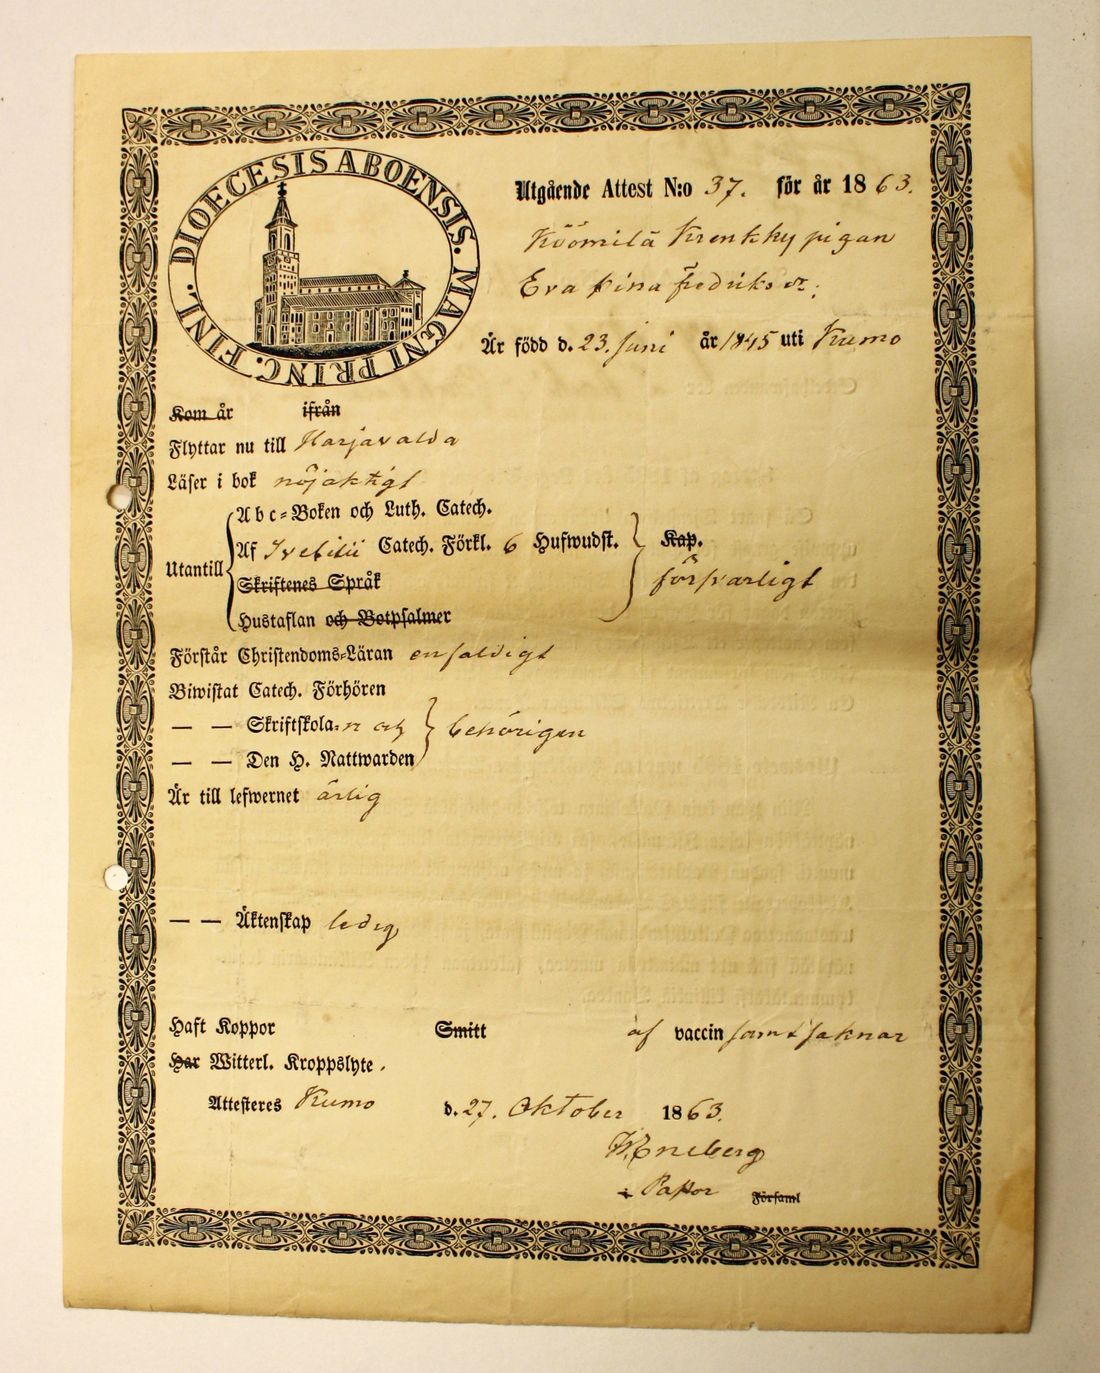 DIOECESIS ABOENSIS. MAGNI PRINC. FINL.
Utgående Attest N:o 37. för år 1863.
Köömilä Krenkky pigan
Eva Stina Fredriks dr.
Är född d. 23. Juni år 1845 uti Kumo
Kom år ifrån
Flyttar nu till Harjavalda
Läser i bok nöjaktigt
Utantill
Abc=Boken och Luth. Catech.
Af Svebilii Catech. Förkl. 6 Hufwudst. Kap.
Skriftenes Språk
försvarligt
Hustaflan och Botpsalmer
Förstår Christendoms=Läran enfaldigt
Biwistat Catech. Förhören
— — Skriftskola:n och behörigen
— — Den H. Nattwarden
Är till lefwernet ärlig
— — Äktenskap ledig
Haft Koppor Smitt af vaccin samt saknar
Har Witterl. Kroppslyte.
Attesteres Kumo d. 27. Oktober 1863.
Eneberg
Pastor Församl